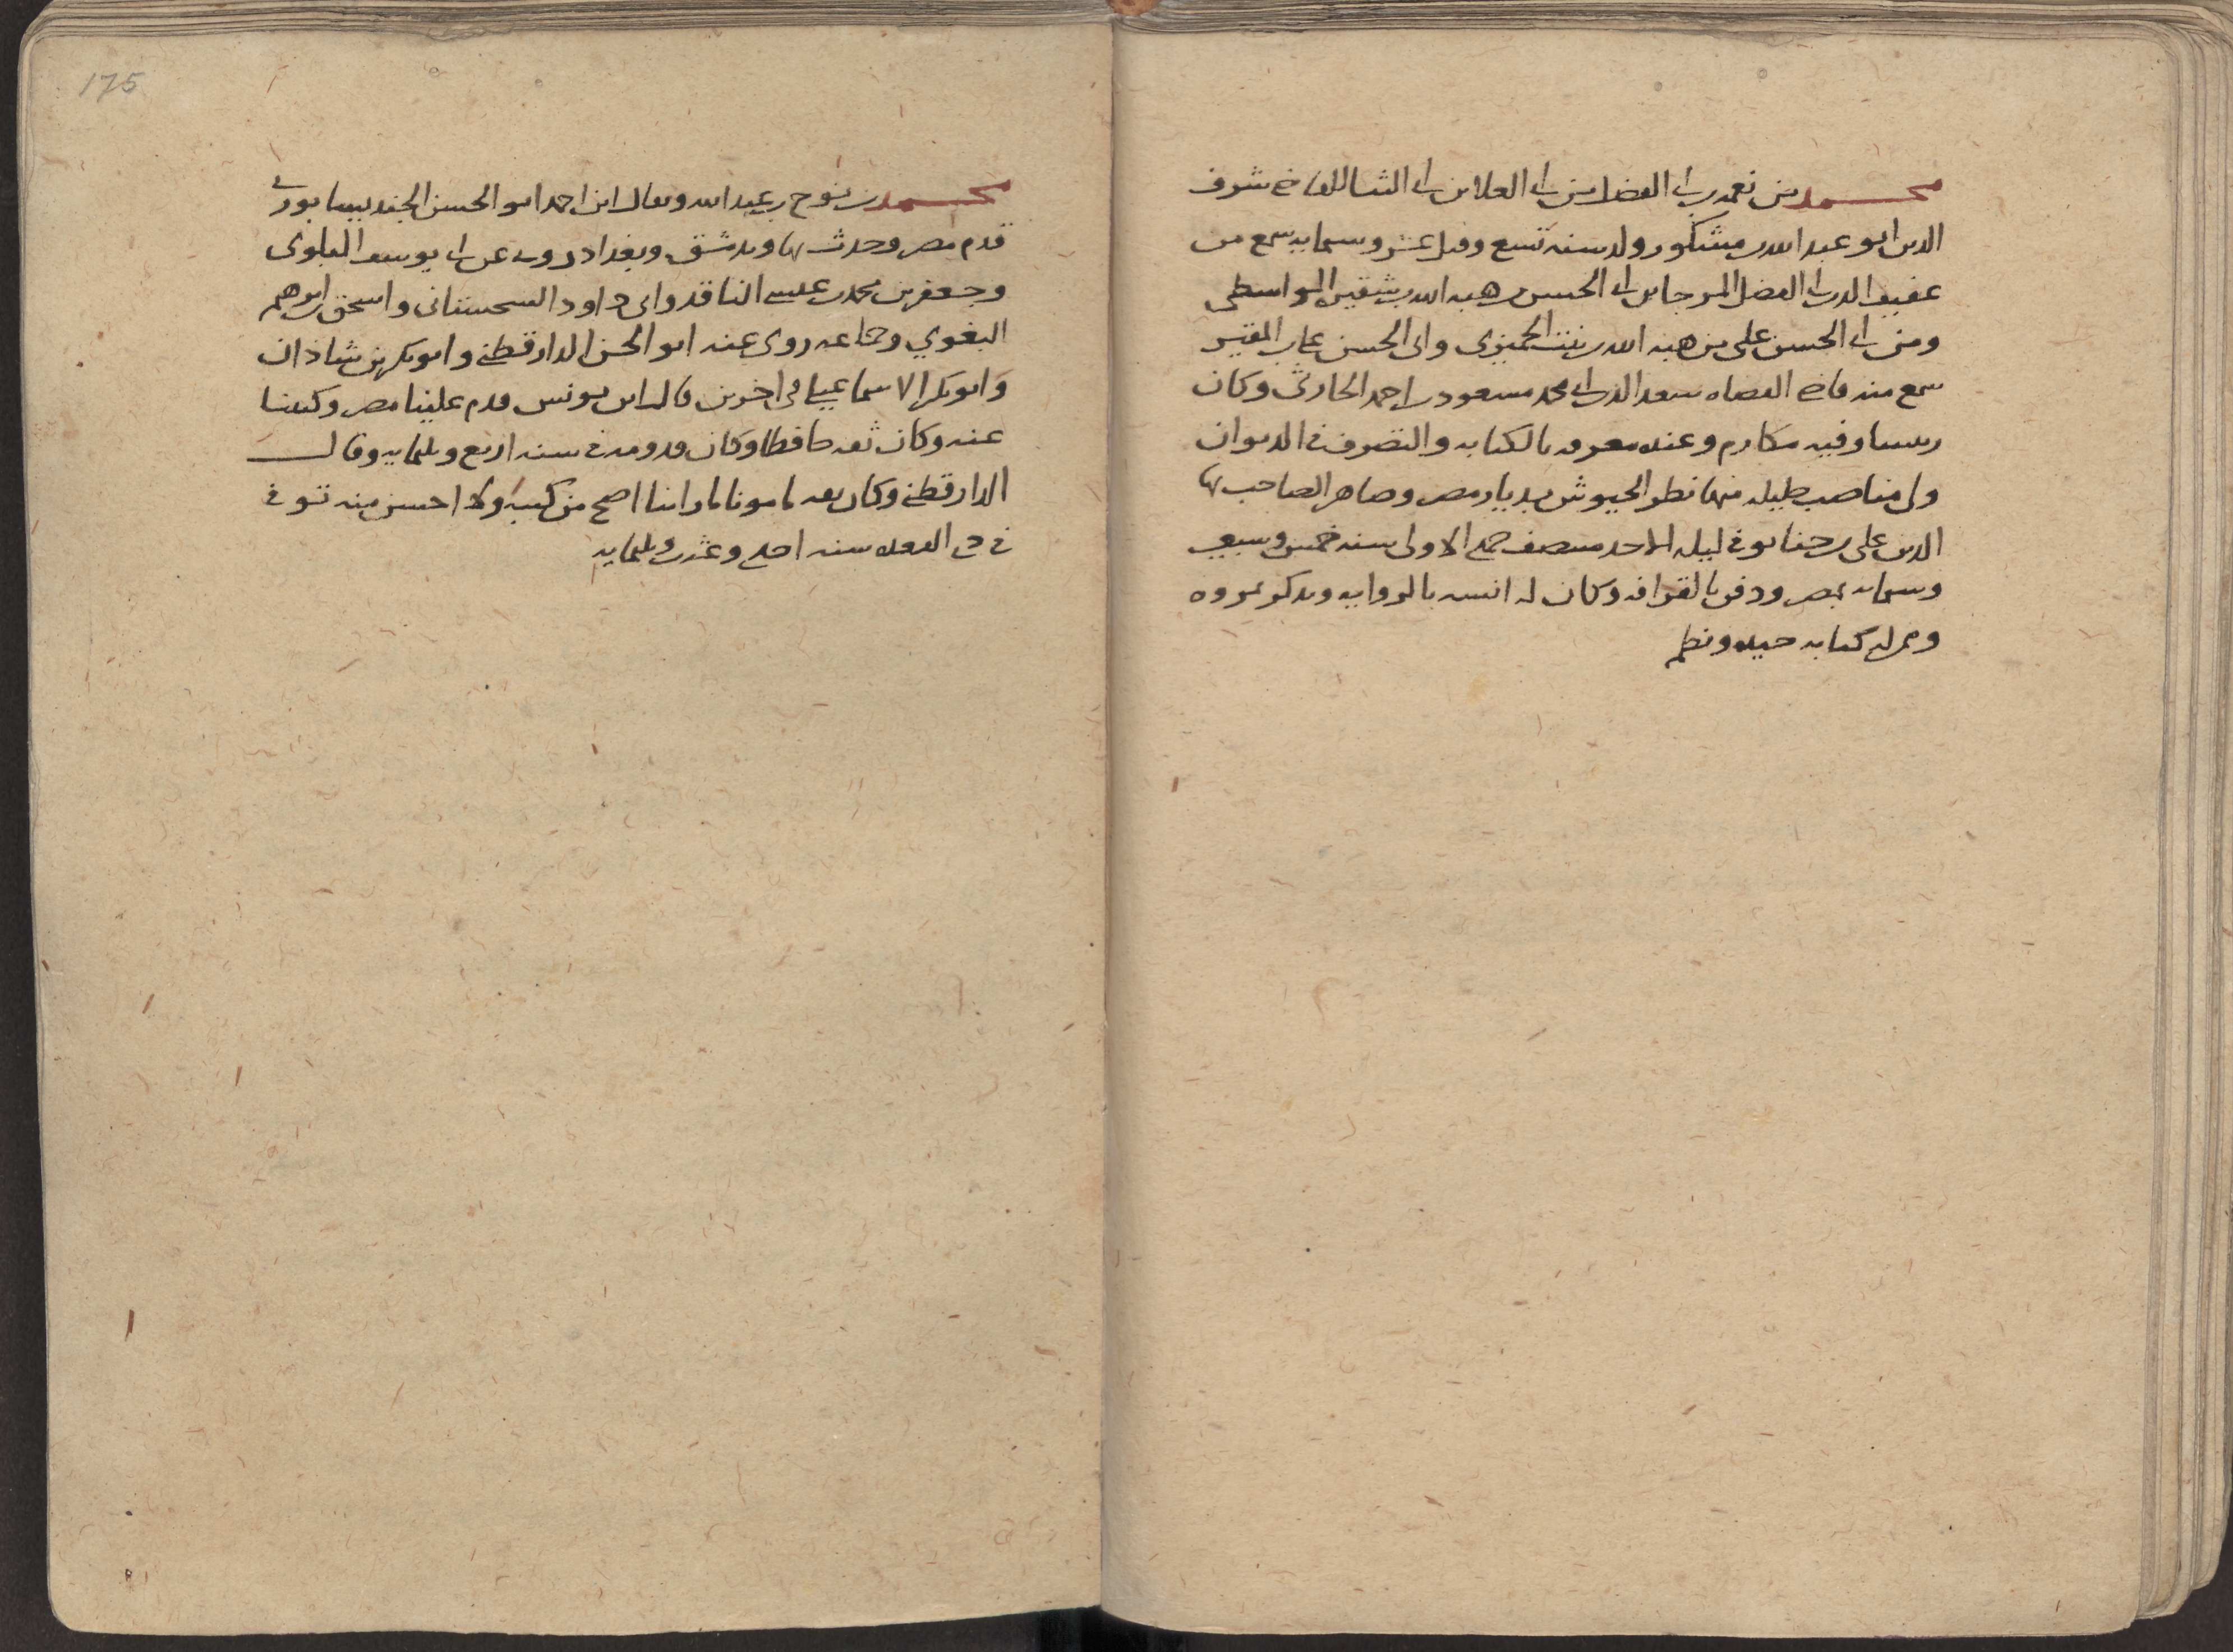 محمد بن نعمه بن ابى الفضل بن ابى العلا بن ابى الثنا القاضى شرف
الدين ابو عبد الله بن مشكور ولد سنه تسع وقيل عشر وسمايه سمع من
عفيف الدين ابى الفضل المرجا بن ابى الحسن بن هبه الله بن شقير الواسطى
ومن ابى الحسن على بن هبه الله بن بنت الجميزى وابى الحسن على بن المقير
سمع منه قاضى القضاه سعد الدين ابى محمد مسعود بن احمد الحارثى وكان
رىسا وفيه مكارم وعنده معرفه بالكتابه والتصرف فى الديوان
ولى مناصب جليله منها نظر الجيوش بديار مصر وصاهر الصاحب بها
الدين على بن حنا توفى ليله الاحد منتصف جمدى الاولى سنه خمس وسبعين
وسمايه بمصر ودفن بالقرافه وكان له انسه بالروايه ويذكر بمروه
وعربيه كتابه جيده ونظم
175
محمد بن نوح بن عبد الله ويقال ابن احمد ابو الحسن الجنديسابورى
قدم مصر وحدث بها وبدمشق وبغداد روى عن ابى يوسف القلوى
وجعفر بن محمد بن عيسى الناقد وابى داود السجستانى واسحق بن ابرهيم
البغوي وجماعه روى عنه ابو الحسن الدارقطنى وابو بكر بن شاذان
وابو بكر الاسماعيلى فى اخرين قال ابن يونس قدم علينا مصر وكتبنا
عنه وكان ثقه حافظا وكان قدومه فى سنه اربع وثلثمايه وقال
الدارقطنى وكان ثقه مامونا ما راينا اصح من كتبه ولا احسن منه توفى
فى ذى القعده سنه احدى وعشرين وثلثمايه